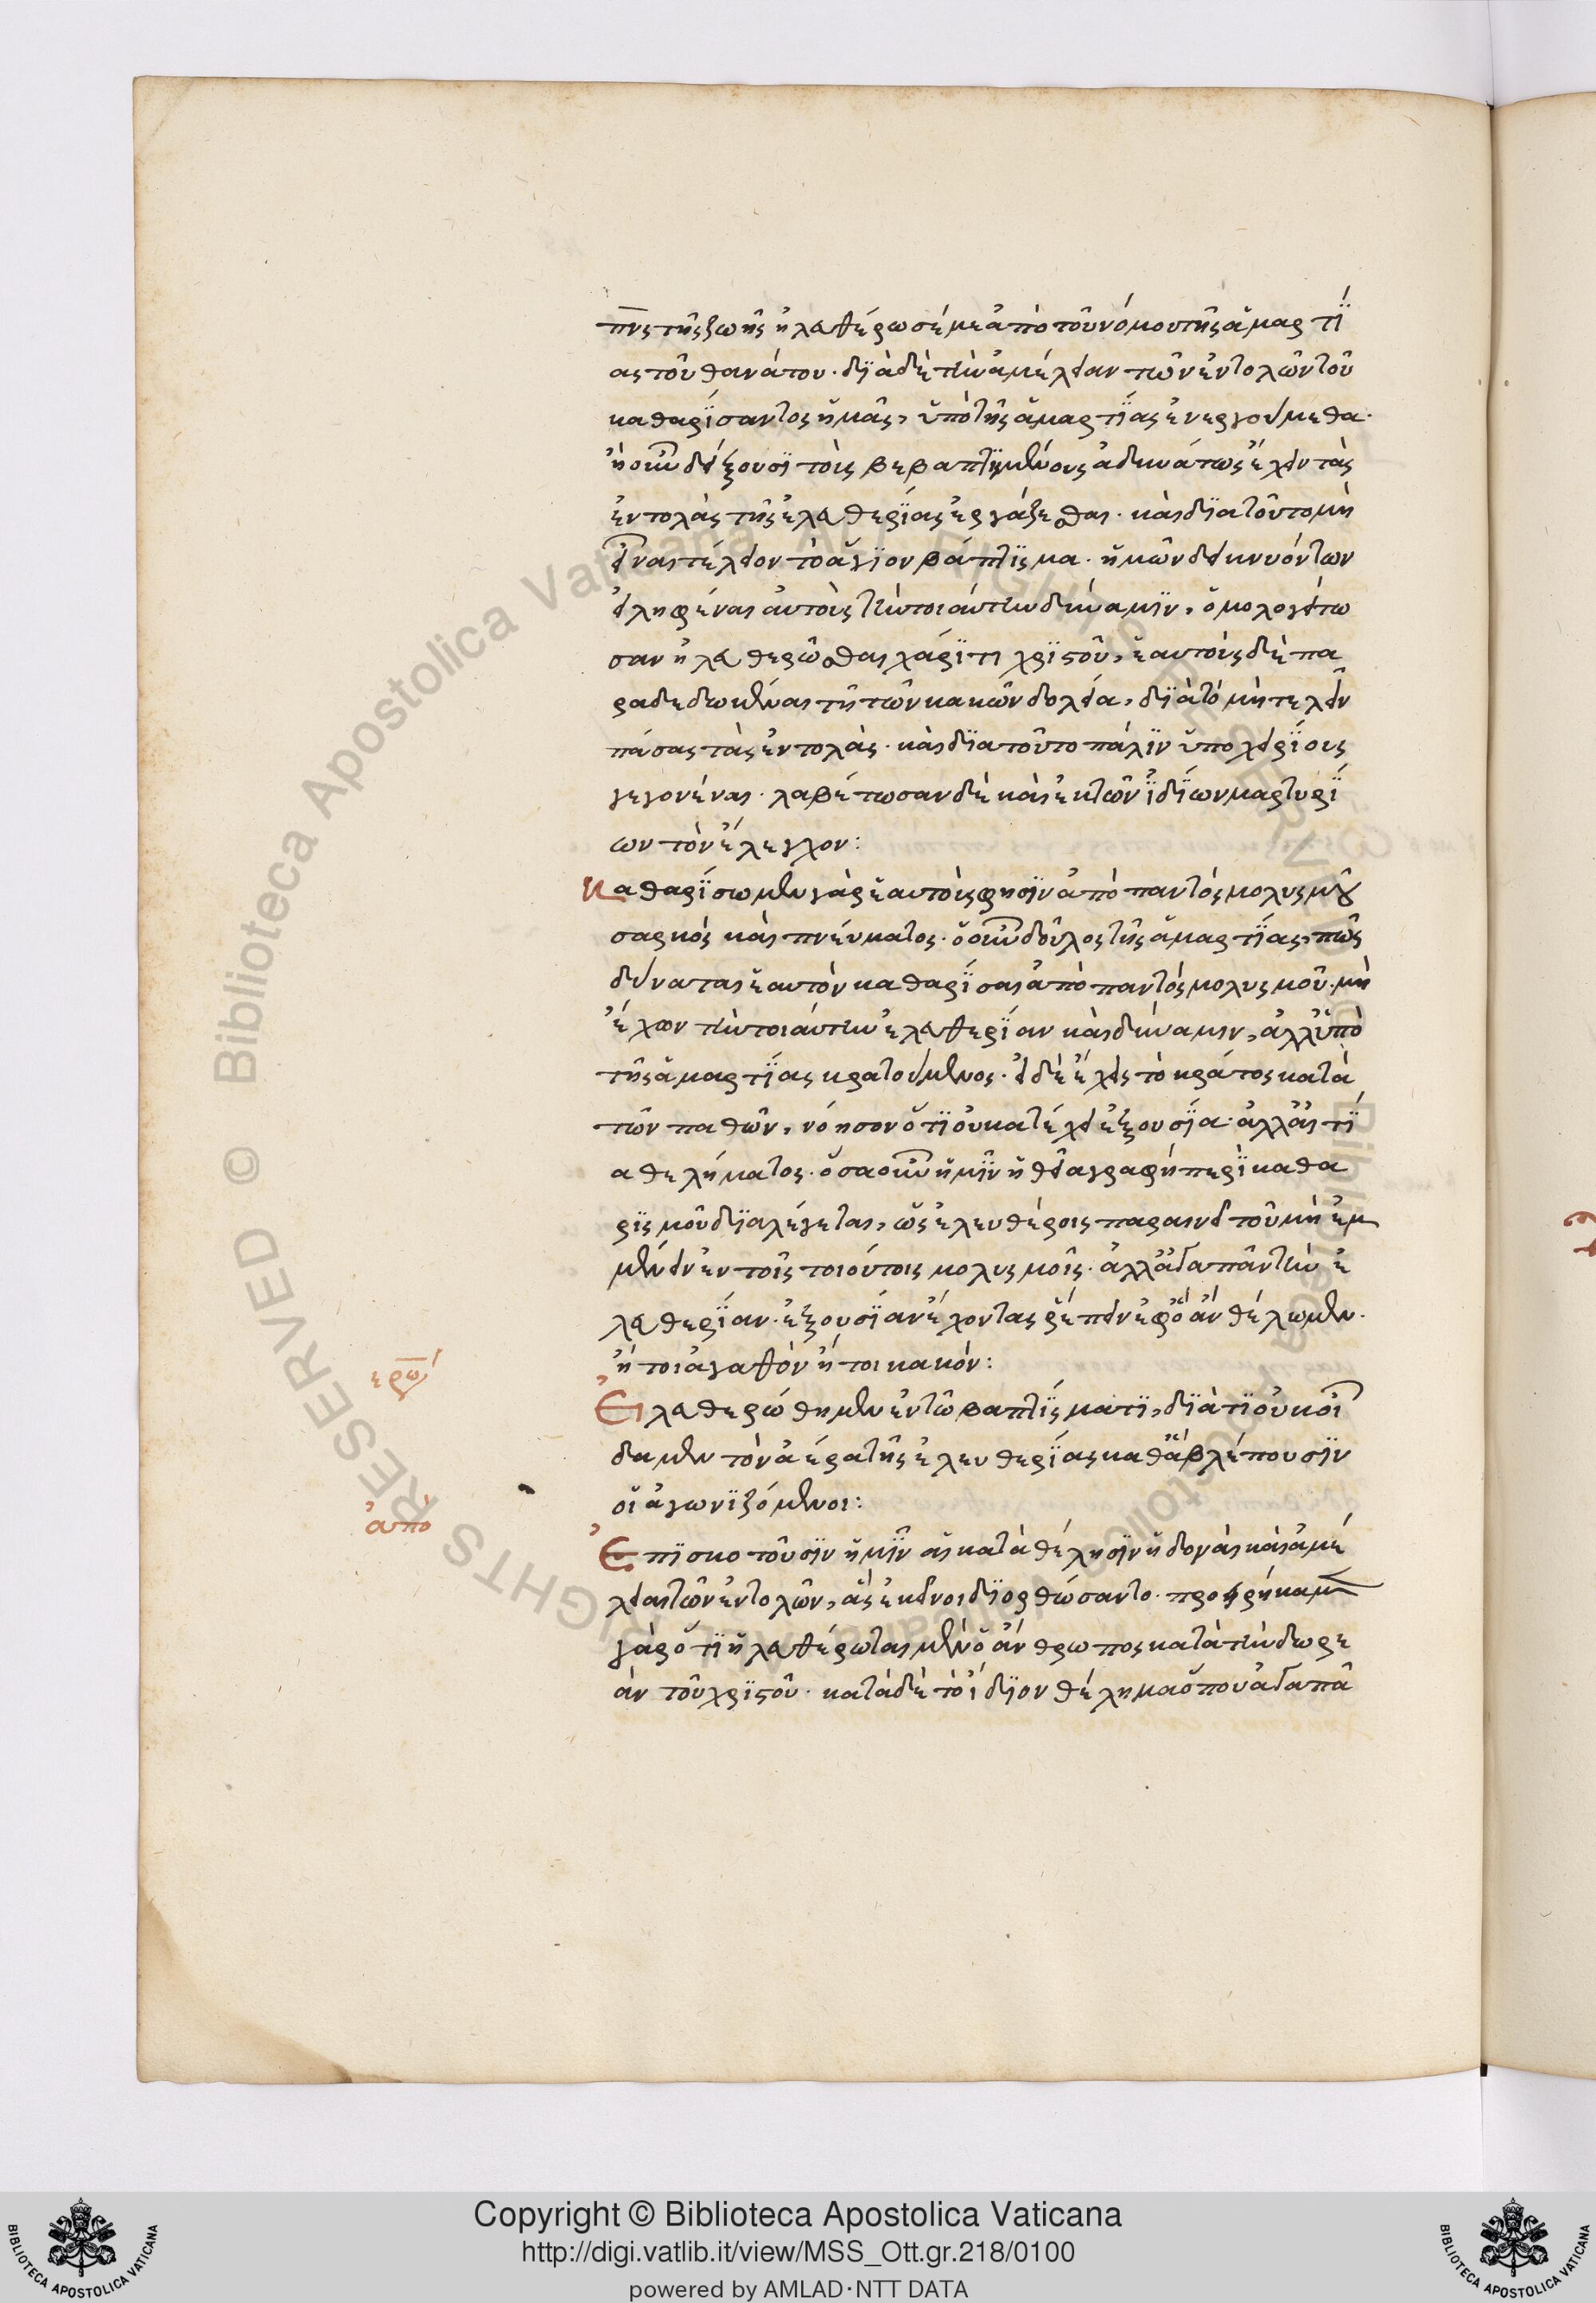 πνς τῆς ζωῆς ἠλευθέρωσέ με ἀπὸ τοῦ νόμου τῆς ἁμαρτί
ας τοῦ θανάτου· διὰ δὲ τὴν ἀμέλειαν τῶν ἐντολῶν τοῦ
καθαρίσαντος ἡμᾶς, ὑπὸ τῆς ἁμαρτίας ἐνεργούμεθα·
ἢ οὖν δείξουσι τοὺς βεβαπτισμένους ἀδυνάτως ἔχειν τὰς
ἐντολὰς τῆς ἐλευθερίας ἐργάζεσθαι· καὶ διατοῦτο μὴ
εἶναι τέλειον τὸ ἅγιον βάπτισμα· ἡμῶν δεικνυόντων
εἰληφέναι αὐτοὺς τὴν τοιαύτην δύναμιν, ὁμολογείτω
σαν ἠλευθερῶσθαι χάριτι χριστοῦ, ἑαυτοὺς δὲ πα
ραδεδωκέναι τῇ τῶν κακῶν δουλεία, διὰ τὸ μὴ τελεῖν
πάσας τὰς ἐντολὰς· καὶ διατοῦτο πάλιν ὑποχειρίους
γεγονέναι· λαβέτωσαν δὲ καὶ ἐκ τῶν ἰδίων μαρτυρί
ων τὸν ἔλεγχον:
Καθαρίσωμεν γὰρ ἑαυτοὺς φησὶν ἀπὸ παντὸς μολυσμοῦ
σαρκὸς καὶ πνεύματος· ὁ οὖν δοῦλος τῆς ἁμαρτίας, πῶς
δύναται ἑαυτὸν καθαρίσαι ἀπὸ παντὸς μολυσμοῦ· μὴ
ἔχων τὴν τοιαύτην ἐλευθερίαν καὶ δύναμιν, ἀλλ' ὑπὸ
τῆς ἁμαρτίας κρατούμενος· εἰ δὲ ἔχεις τὸ κράτος κατὰ
τῶν παθῶν, νόησον ὅτι οὐ κατέχει ἐξουσία· ἀλλ' αἰτί
α θελήματος· ὅσα οὖν ἡμῖν ἡ θεία γραφὴ περὶ καθα
ρισμοῦ διαλέγεται, ὡς ἐλευθέροις παραινεῖ τοῦ μὴ ἐμ
μένειν ἐν τοῖς τοιούτοις μολυσμοῖς· ἀλλ' ἀγαπᾶν τὴν ἐ
λευθερίαν· ἐξουσίαν ἔχοντας ῥέπειν ἐφ' ὃ ἂν θέλωμεν·
ἤτοι ἀγαθὸν ἤτοι κακόν:
ἐρώ
Εἰ ἐλευθερώθημεν ἐν τῶ βαπτίσματι, διὰ τί οὐκ οἴ
δαμεν τὸν ἀέρα τῆς ἐλευθερίας καθὰ βλέπουσιν
οἱ ἀγωνιζόμενοι:
ἀπὸ
Ἐπισκοτοῦσιν ἡμῖν αἱ κατὰ θέλησιν ἡδοναὶ καὶ ἀμέ
λειαι τῶν ἐντολῶν, ἃς ἐκεῖνοι διορθώσαντο· προειρήκαμεν
γὰρ ὅτι ἠλευθέρωται μὲν ὁ ἄνθρωπος κατὰ τὴν δωρε
ὰν τοῦ χριστοῦ· κατὰ δὲ τὸ ἴδιον θέλημα ὅπου ἀγαπᾶ
Copyright © Biblioteca Apostolica Vaticana
http://digi.vatlib.it/view/MSS_Ott.gr.218/0100
powered by AMLAD·NTT DATA